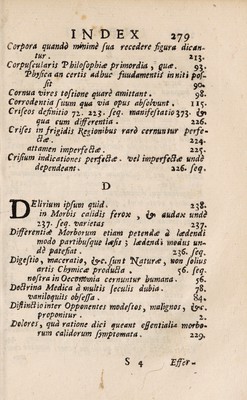 INDEX 279
Corpora quandò minimè sua recedere figura dican-
tur. 213.
Corpuscularis Philosophiæ primordia, quæ. 93.
Physica an certis adhuc fundamentis inniti pos-
sit 90.
Cornua vires tosione quarè amittant. 98.
Corredentia suum qua via opus absolvunt. 115.
Criseos definitio 72. 223. seq. manifestatio 373. &
qua cum differentia. 226. seq.
Crises in frigidis Regionibus rarò cernuntur perfe-
ctæ. 224.
attamen imperfectæ. 225.
Crisium indicationes perfectæ. vel imperfectæ undè
dependeant. 226. seq.
D
DElirium ipsum quid. 238.
in Morbis calidis ferox, & audax undè
237. seq. varietas 237.
Differentiæ Morborum etiam petendæ à lædendi
modo partibusque læsis; lædendi modus un-
dè patefiat. 236. seq.
Digestio, maceratio, &c. sunt Naturæ, non solius
artis Chymicæ producta. 56. seq.
nostra in Oeconomia cernuntur humana. 56.
Doctrina Medica à multis seculis dubia. 78.
vaniloquiis obsessa. 84.
Distinctio inter Opponentes modestos, malignos, &c.
preponitur. 2.
Dolores, quâ ratione dici queant essentialia morbo-
rum calidorum symptomata. 229.
S 4 Effer-